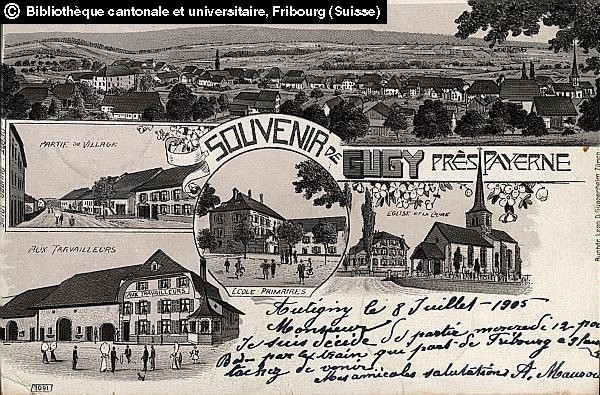 © Bibliothèque cantonale et universitaire, Fribourg (Suisse)
SOUVENIR DE GUGY PRÈS PAYERNE
PARTIE DU VILLAGE
EGLISE ET LA CURE
AUX TRAVAILLEURS
ECOLE PRIMAIRES
AUX TRAVAILLEURS
Autigny le 8 Juillet - 1905
Monsieur
Je suis décidé de partir mercredi 12
par train que part de Fribourg à
tachez de venir.
Mes amicales salutations A.
1091